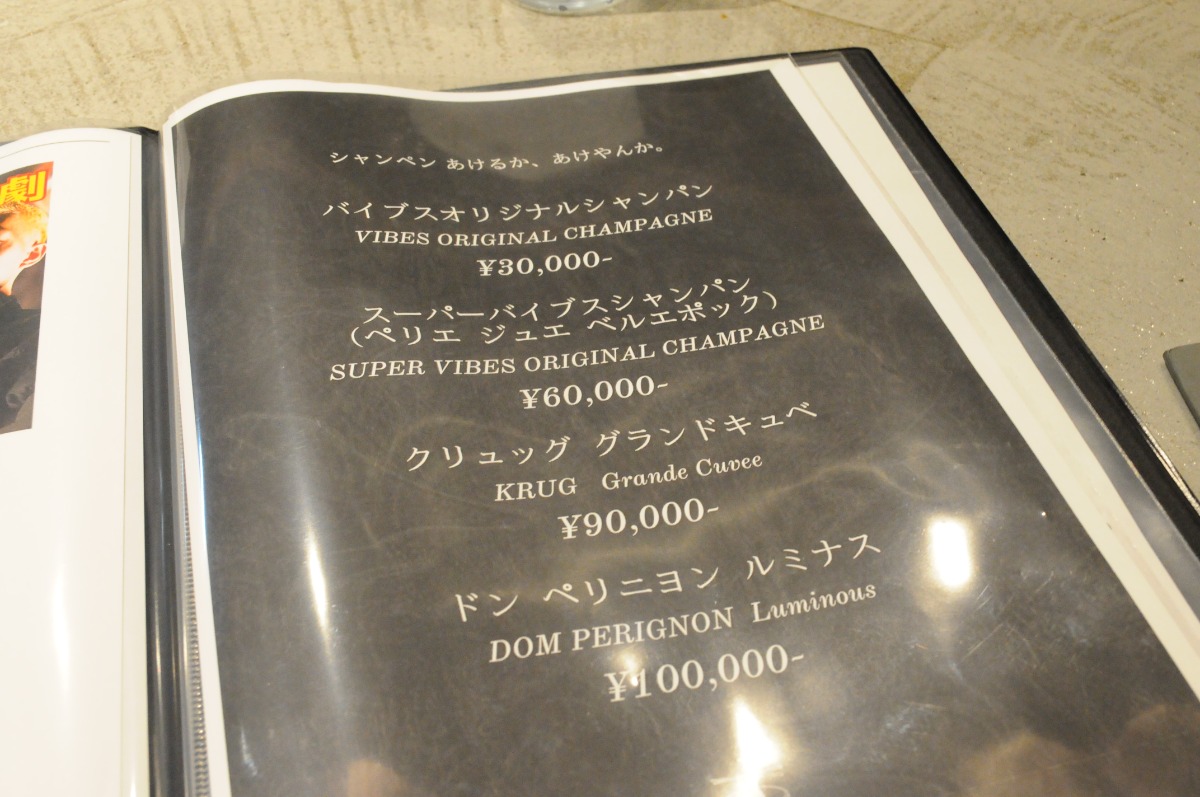 劇
シャンペン あけるか、あけやんか。
バイブスオリジナルシャンパン
VIBES ORIGINAL CHAMPAGNE
¥30,000-
スーパーバイブスシャンパン
(ペリエ ジュエ ベルエポック)
SUPER VIBES ORIGINAL CHAMPAGNE
¥60,000-
クリュッグ グランドキュベ
KRUG Grande Cuvee
¥90,000-
ドン ペリニヨン ルミナス
DOM PERIGNON Luminous
¥100,000-